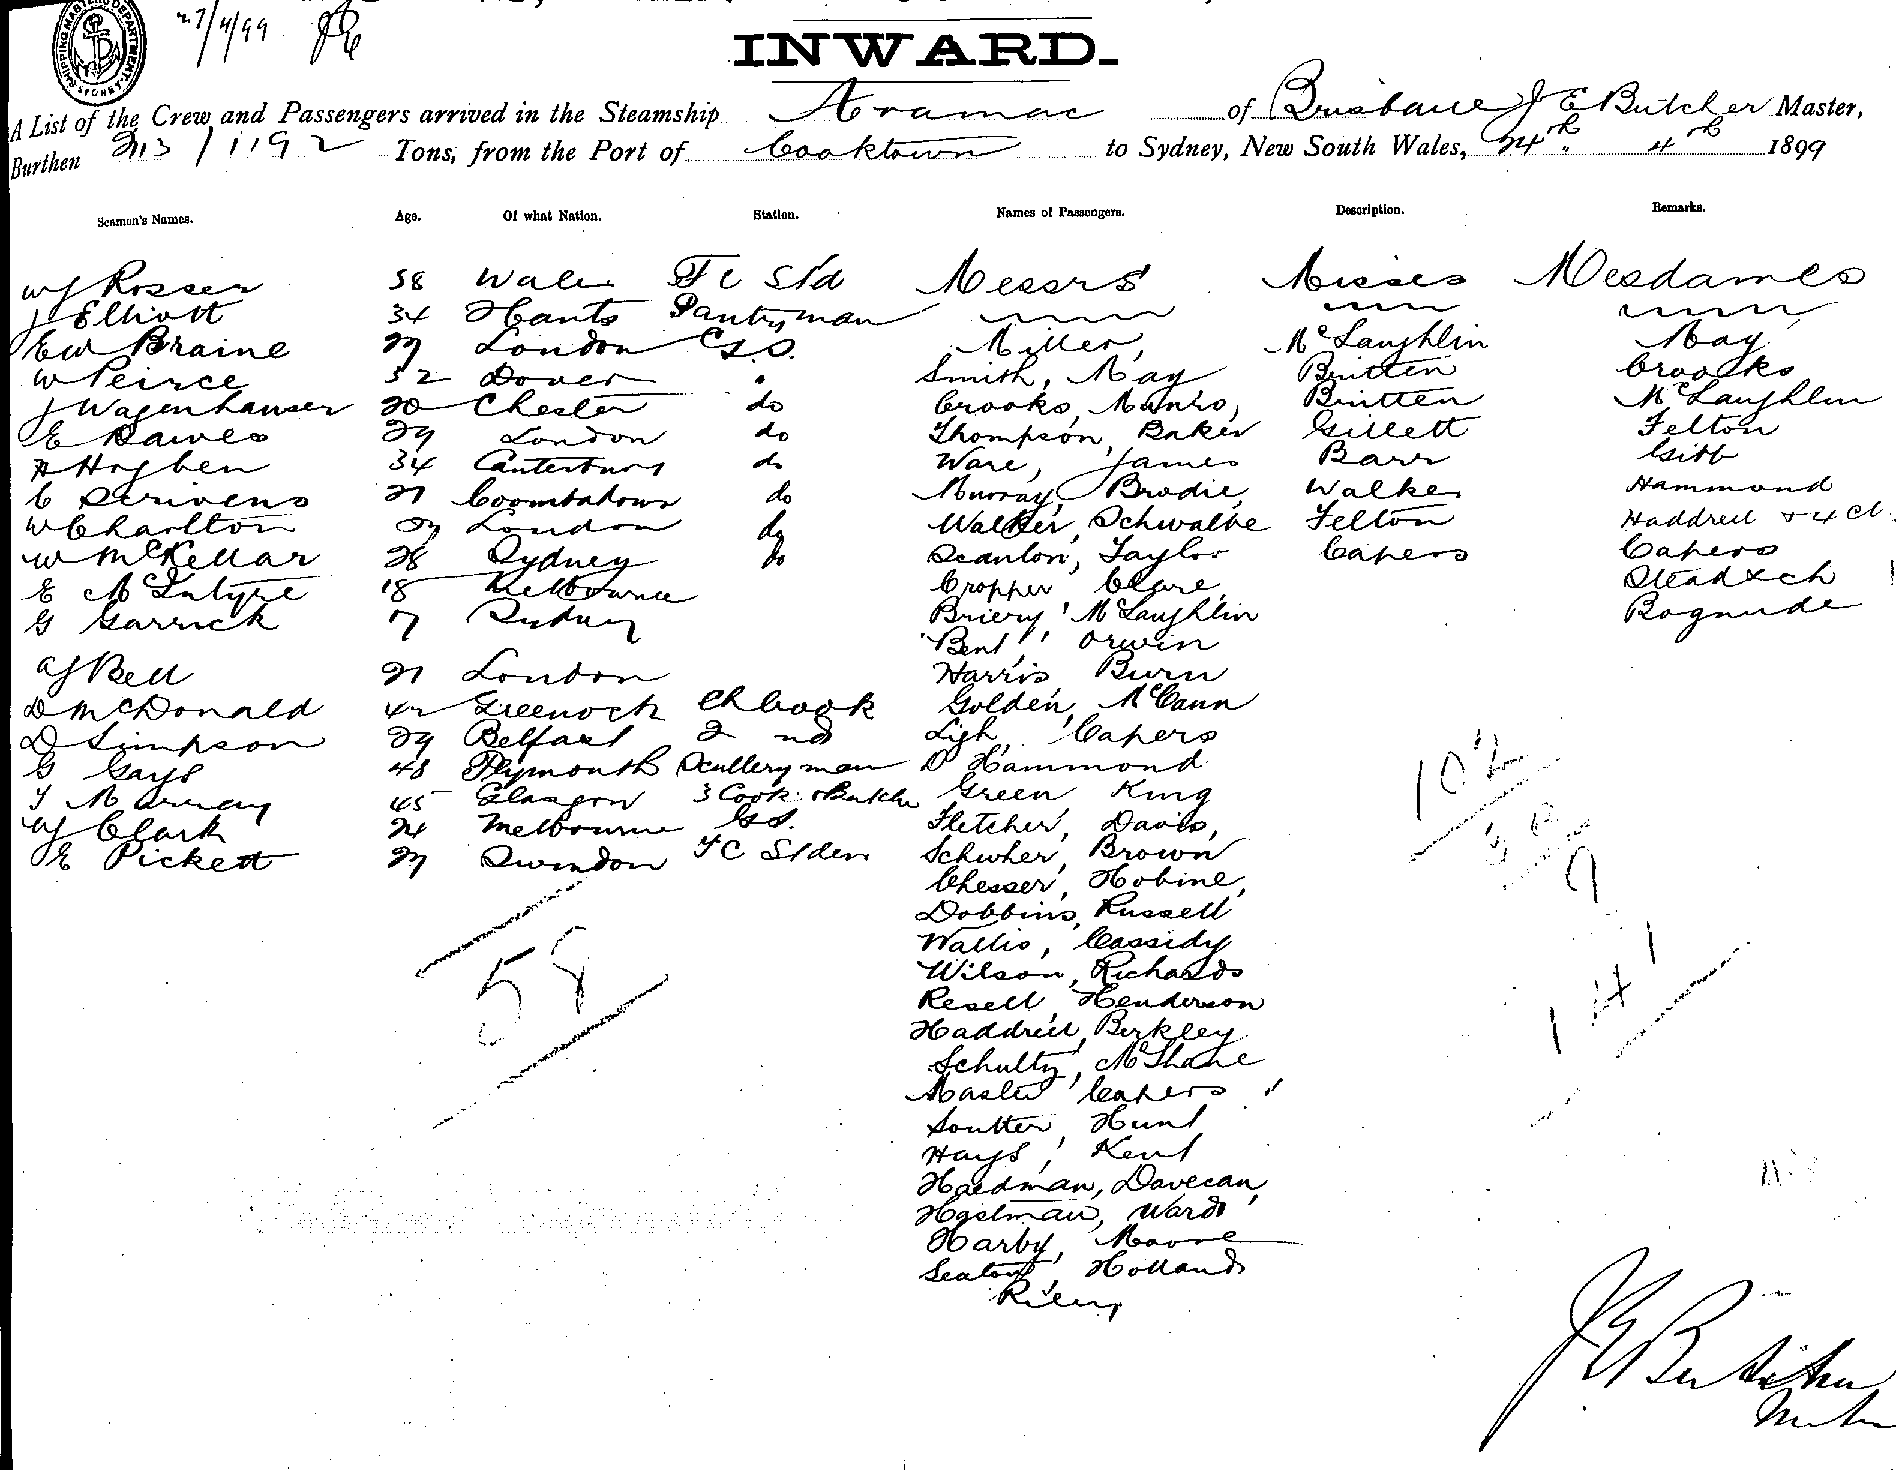 SHIPPING MASTERS DEPARTMENT SYDNEY
27/4/99
INWARD.
A List of the Crew and Passengers arrived in the Steamship Aramac of Brisbane J E Butcher Master,
Burthen 2113/1192 Tons, from the Port of Cooktown to Sydney, New South Wales, 24th 4th 1899
Seamen's Names. Age. Of what Nation. Station. Names of Passengers. Description. Remarks.
W J Rosser 38 Wales F C Std Messrs Misses Mesdames
J Elliott 34 Hants Pantryman
E W Braine 29 London Miller, McLaughlin May
W Peirce 32 Dover " Smith, May Britten Crooks
J Wagenhauser 20 Chester do Crooks, Munro, Britten McLaughlin
E Dawes 29 London do Thompson, Baker Gillett Felton
H Hogben 34 Canterbury do Ware, James Barr Gibb
C Scrivens 21 do Murray, Brodie, Walker Hammond
W Charlton 29 London do Walker, Schwalbe Felton Haddrell & 4 Ch
W McKellar 28 Sydney do Scanlon, Taylor Capers Capers
E McIntyre 18 Melbourne Cropper Clare,
G Garrick 17 Sydney Briery, McLaughlin
Bent, Orwin
A J Bell 21 London Harris Burn
D McDonald 42 Greenock Ch Cook Golden, McCann
D Simpson 29 Belfast 2nd Ligh, Capers
G Gays 48 Plymouth Sculleryman D Hammond
T Murray 45 Glasgow 3 Cook & Butcher Green King
A J Clark 24 Melbourne G.S. Fletcher, Davis,
E Pickett 29 Swindon F C Stden Brown
Chesser, Hobine,
Dobbins, Russell
Wallis, Cassidy
Wilson, Richards
Resell, Henderson
Haddrell, Berkley
Schultz, McShane
Master Capers
Soutter, Hunt
Hays, Kent
Hardman, Davecan,
Ward
Harby, Moore
Seaton, Holland
Riley
58
102
141
J E Butcher
Master